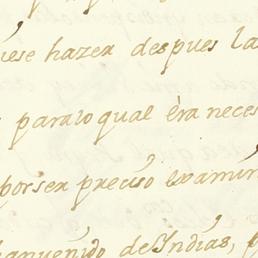 iese hazer despues la
paralo qual èra neces
porser preciso examin
hanvenido deYndias,